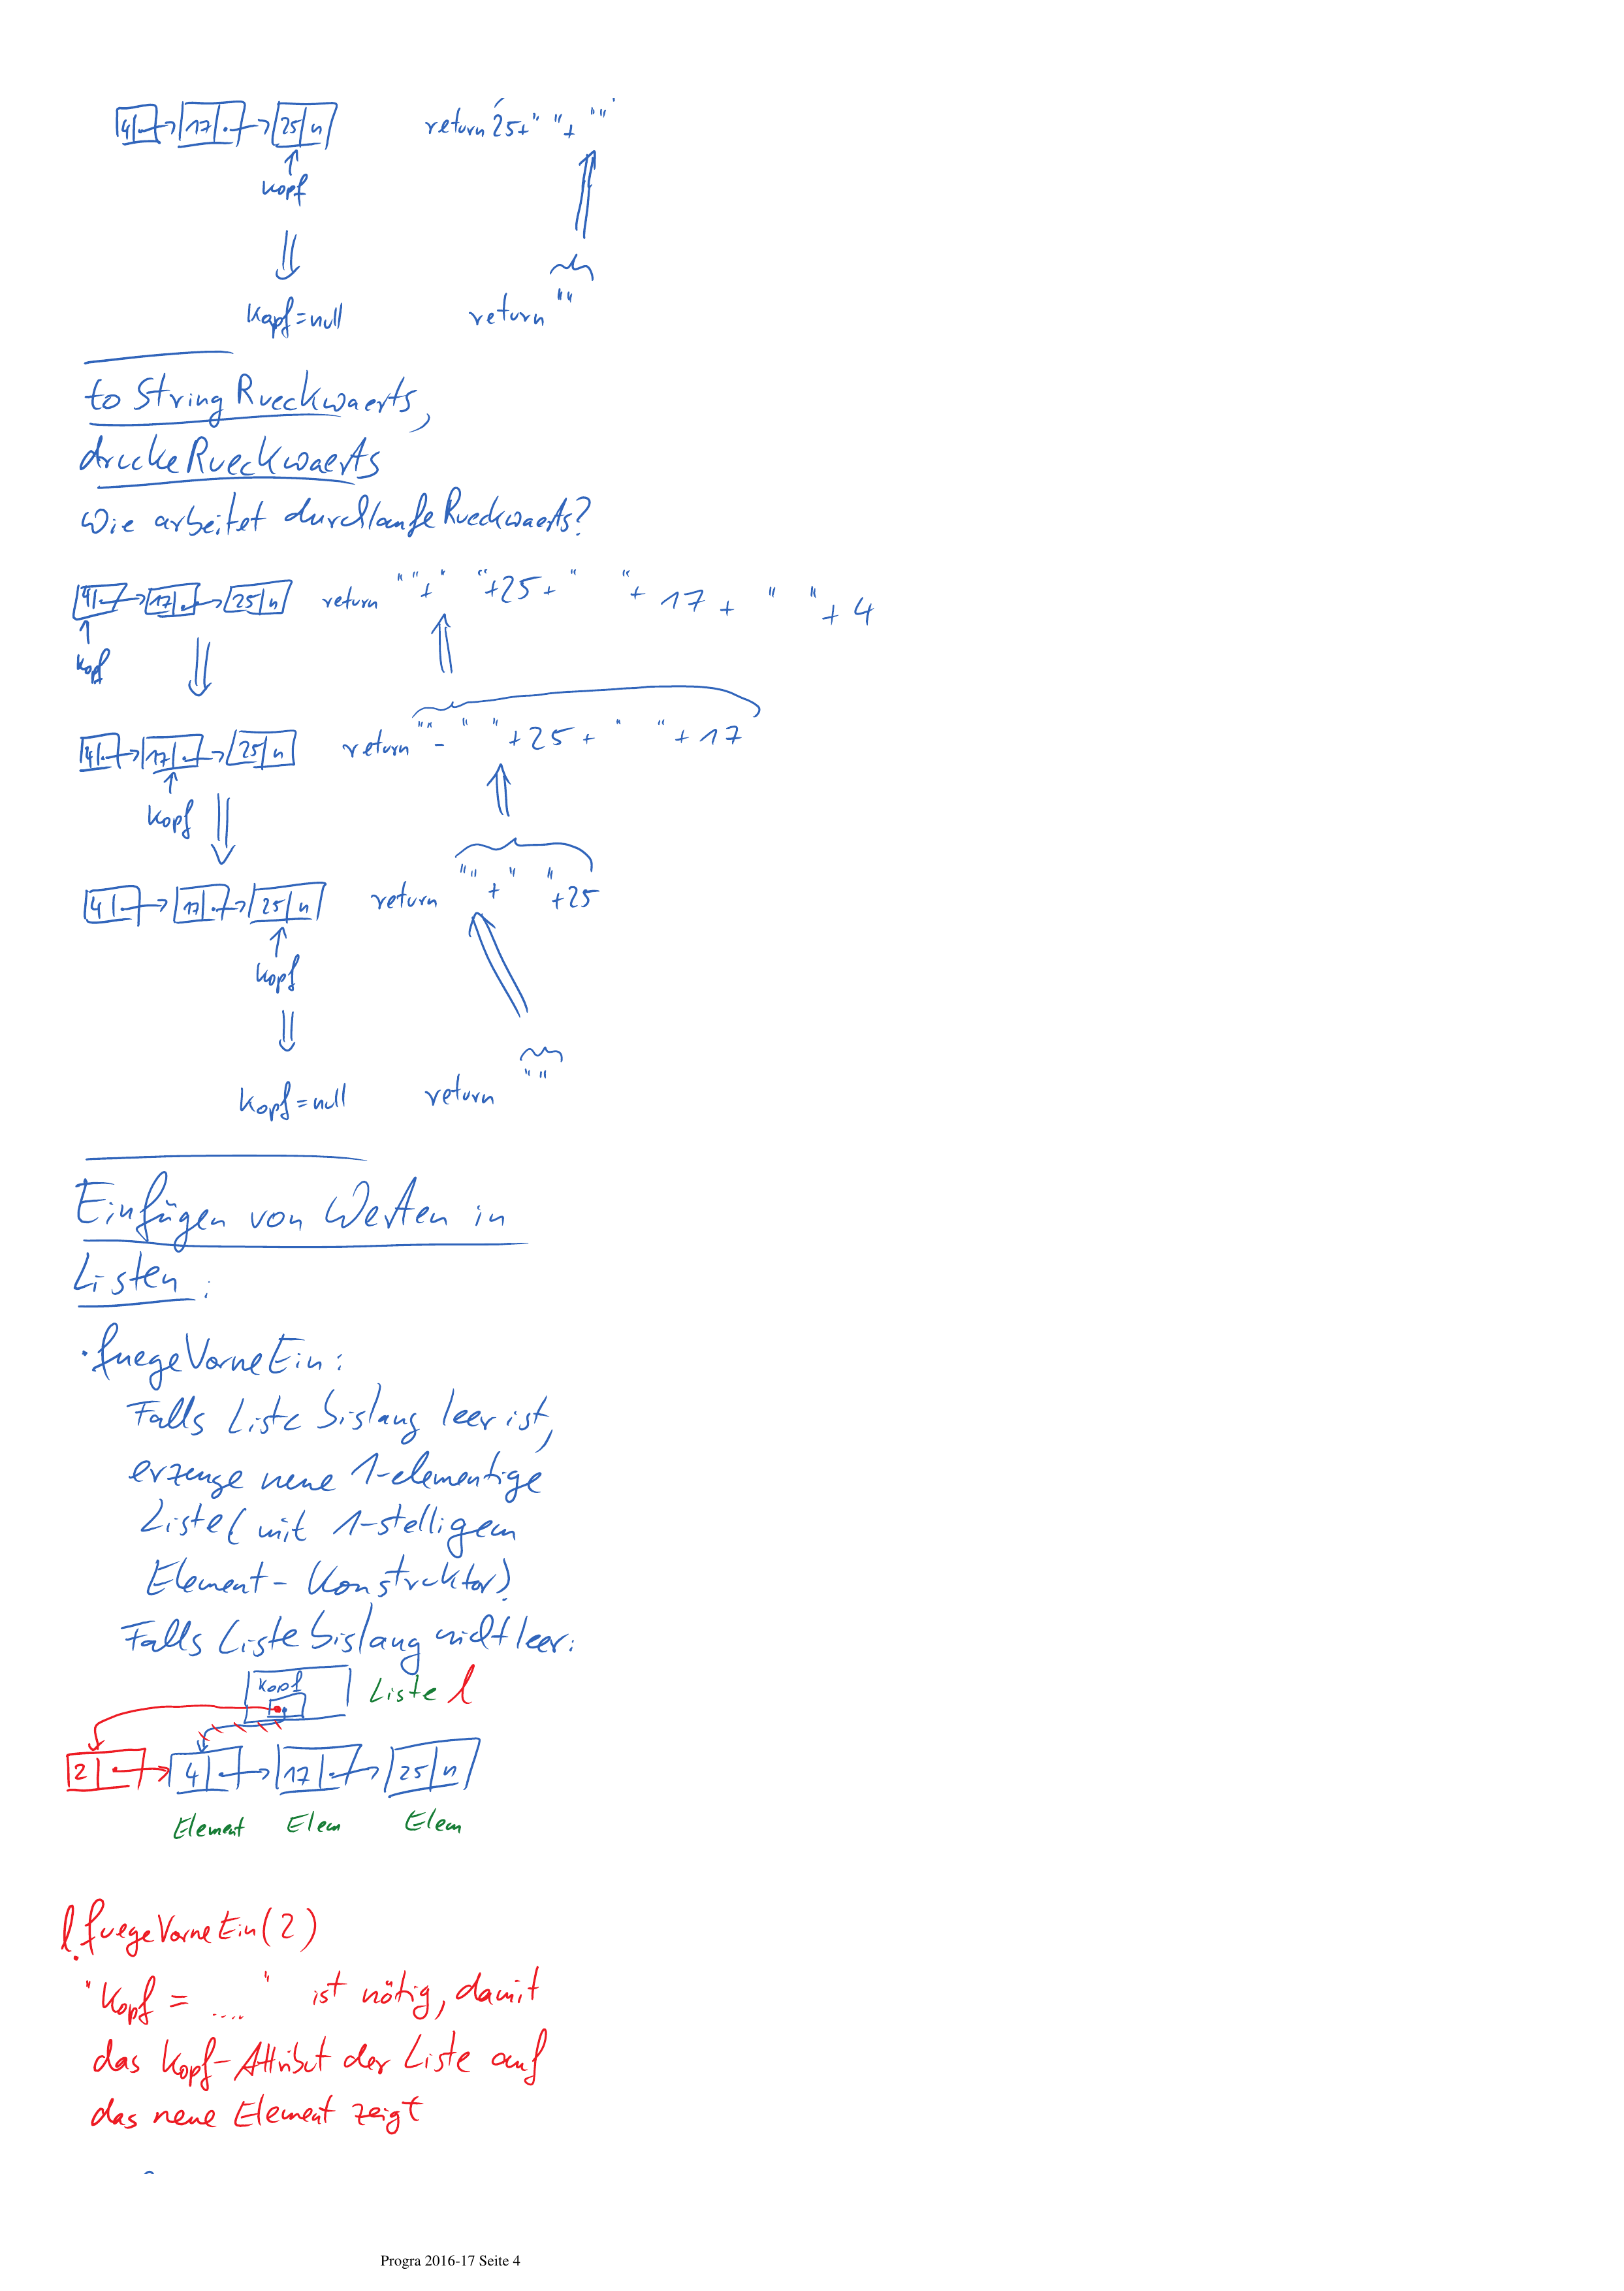 4 17 25 n return 25+" "+ ""
Kopf
Kopf=null return ""
toStringRueckwaerts,
druckeRueckwaerts
Wie arbeitet durchlaufeRueckwaerts?
4 17 25 n return ""+" "+25+" "+17+" "+4
Kopf
4 17 25 n return ""-" "+25+" "+17
Kopf
4 17 25 n return ""+" "+25
Kopf
Kopf=null return ""
Einfügen von Werten in
Listen:
·fuegeVorneEin:
Falls Liste bislang leer ist,
erzeuge neue 1-elementige
Liste (mit 1-stelligem
Element-Konstruktor).
Falls Liste bislang nicht leer:
Kopf Liste l
2 4 17 25 n
Element Elem Elem
l.fuegeVorneEin(2)
"Kopf = ...." ist nötig, damit
das Kopf-Attribut der Liste auf
das neue Element zeigt
Progra 2016-17 Seite 4